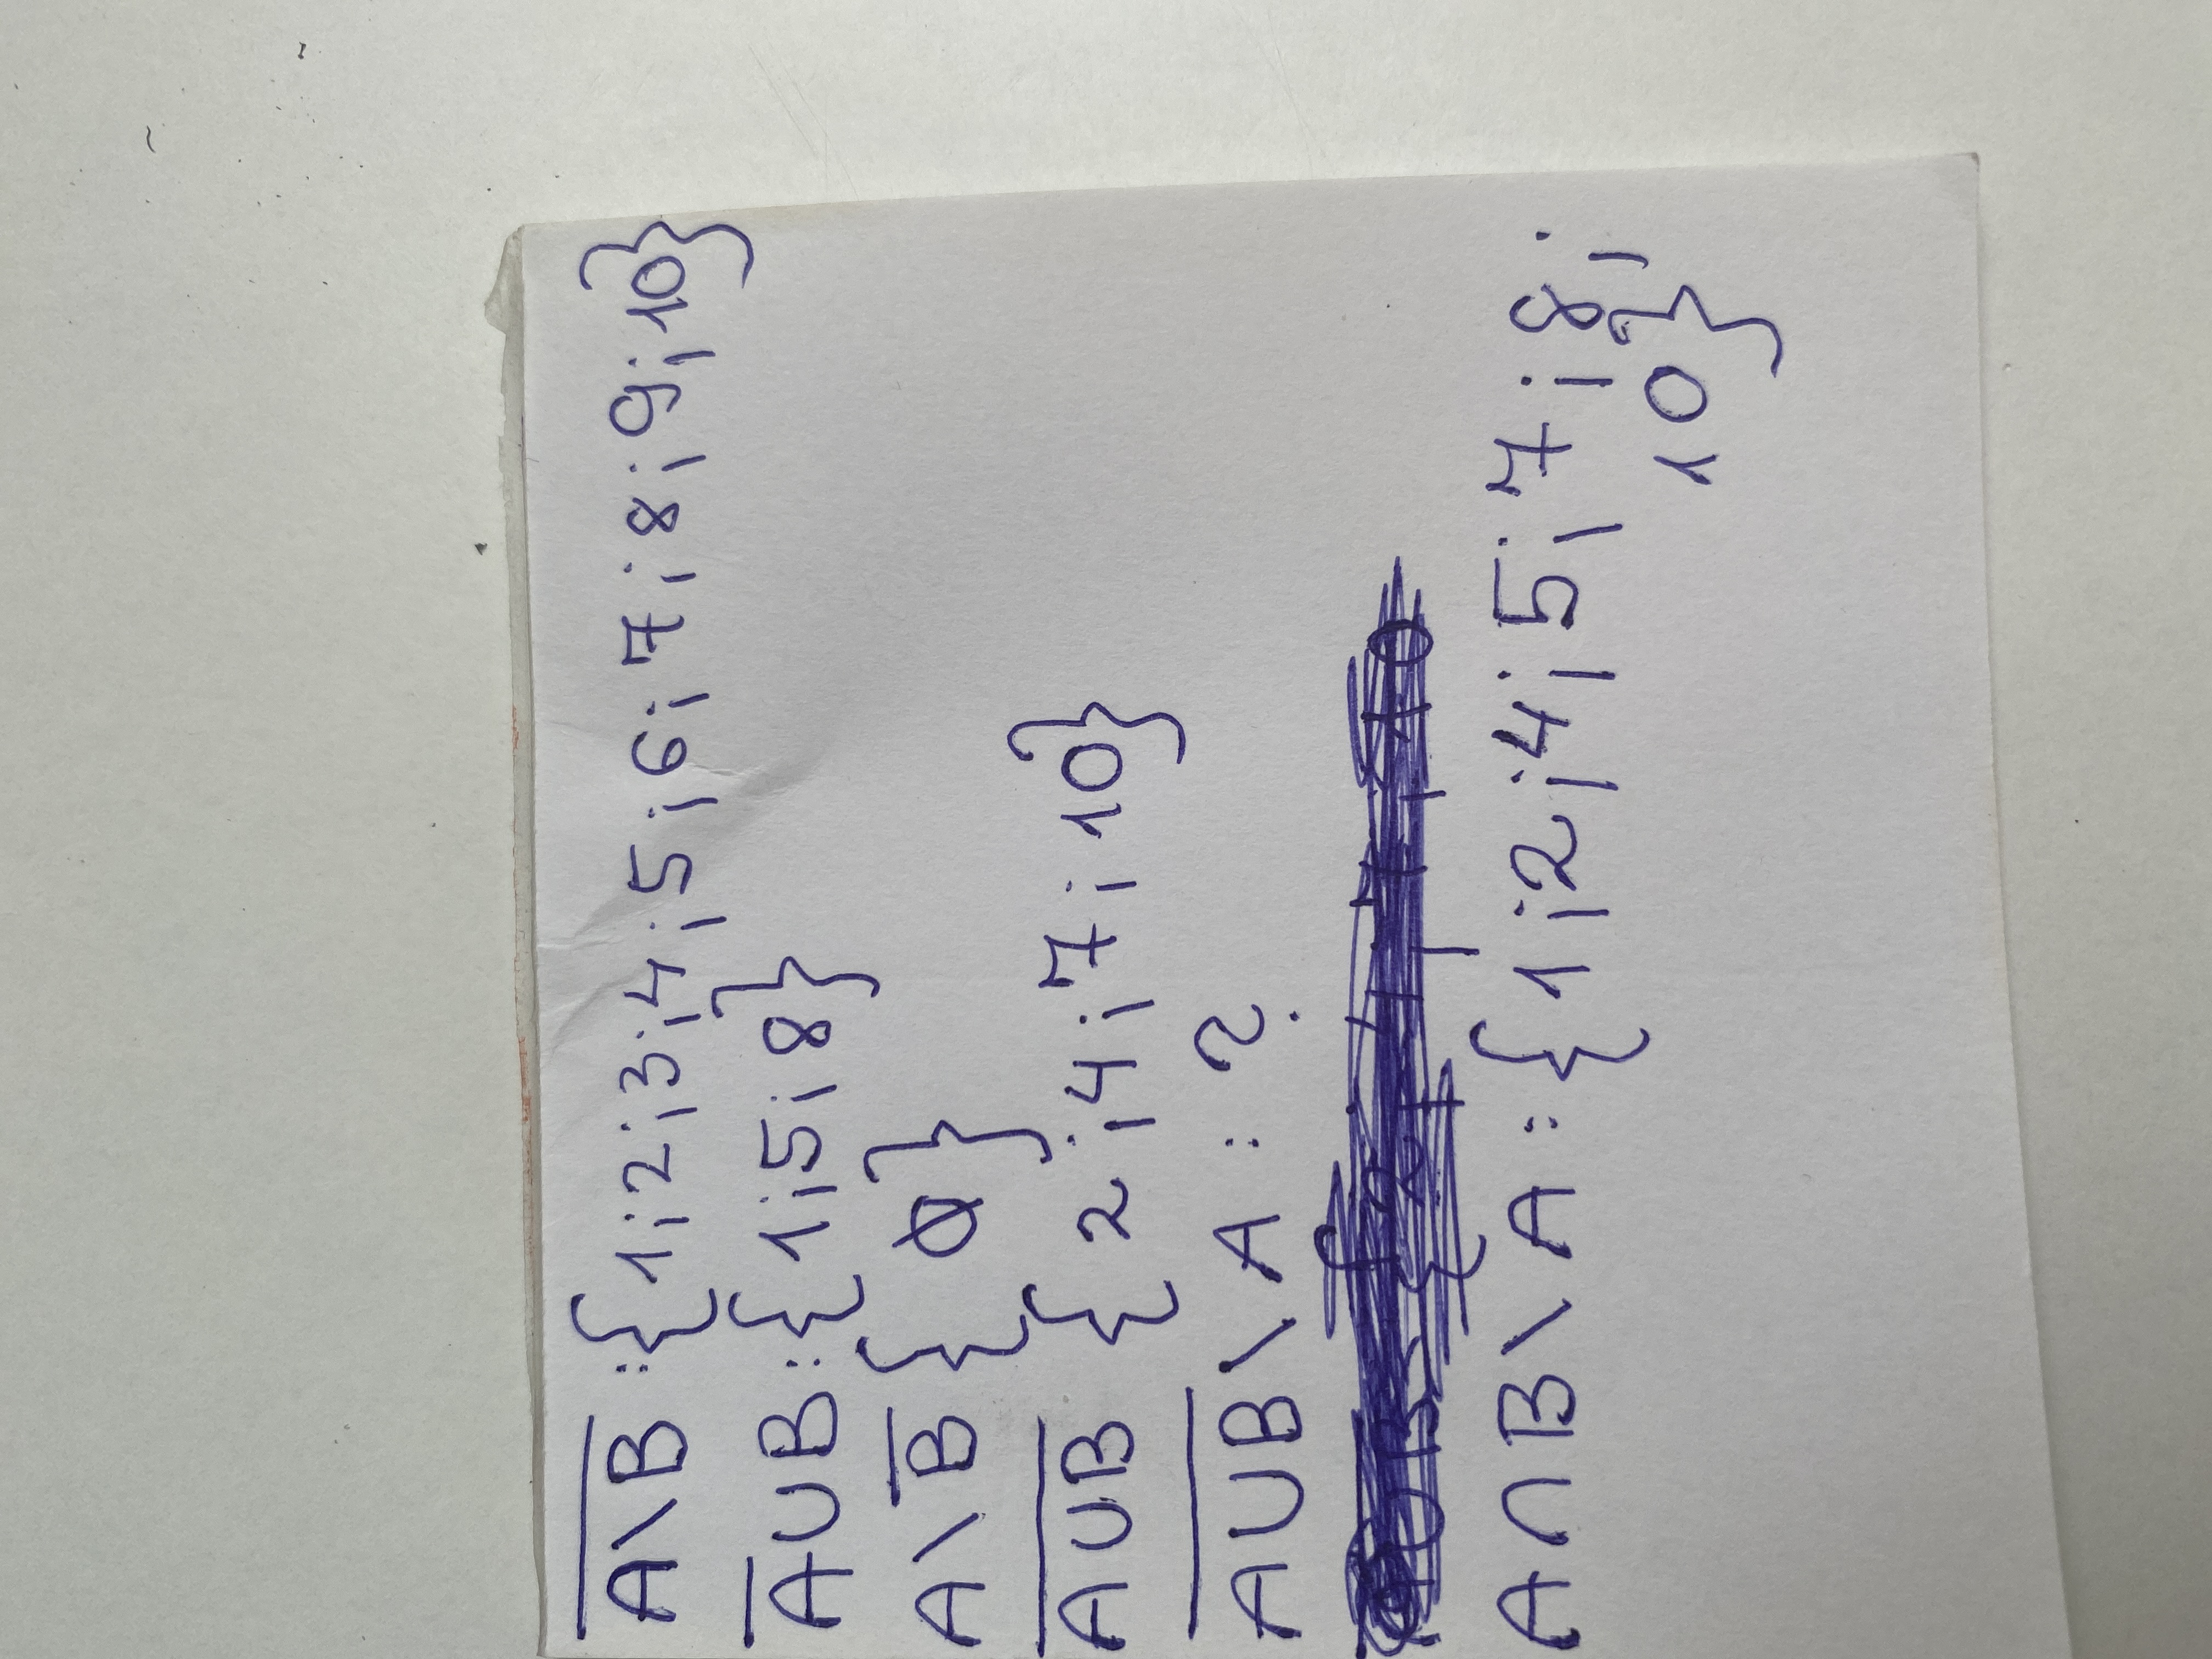 A̅\̅B̅ : {1;2;3;4;5;6;7;8;9;10}
A̅∪B : {1;5;8}
A\B̅ {∅}
A̅∪̅B̅ {2;4;7;10}
A̅∪̅B̅\A : ?
A∩B\A : {1;2;4;5;7;8;
10}